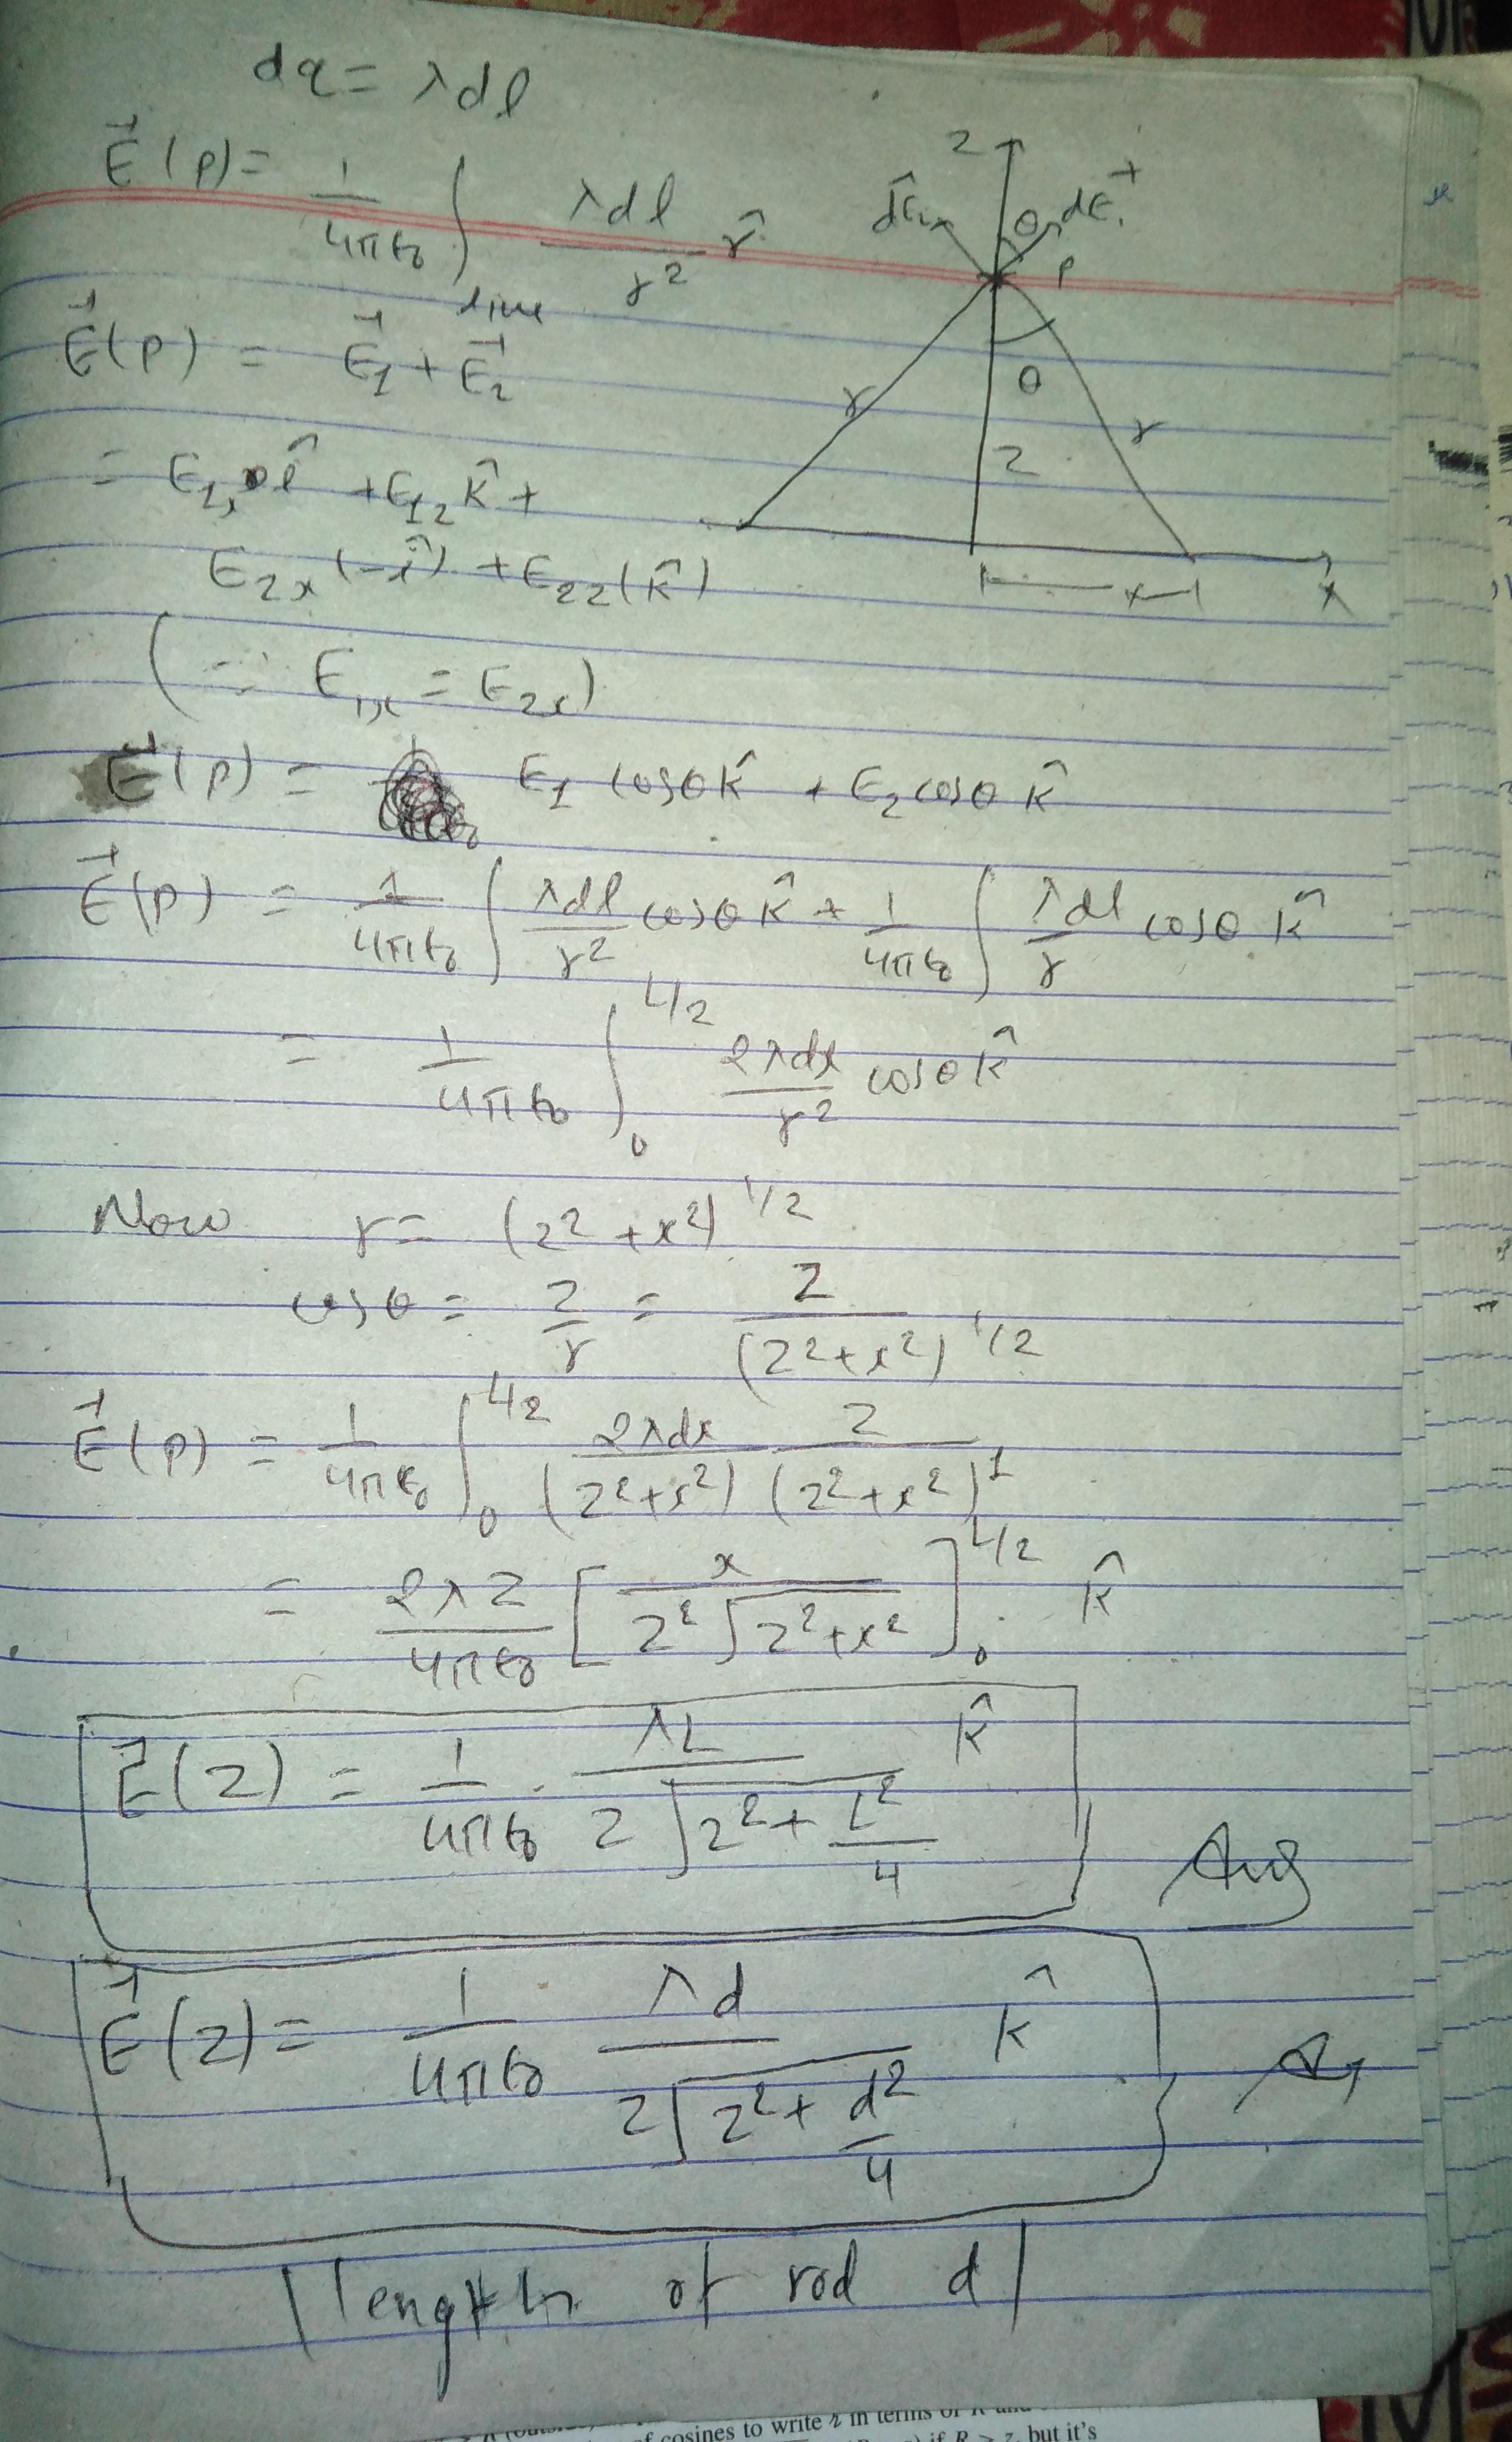 dq = λdl
E⃗(p) = 1/4πε₀ ∫line λdl/r² r̂
E⃗(p) = E⃗₁ + E⃗₂
= E₁ₓ î + E₁z k̂ +
E₂ₓ(-î) + E₂z(k̂)
(∵ E₁ₓ = E₂ₓ)
z
dE⃗₂
θ
dE⃗₁
P
θ
r
r
z
x
x
E⃗(p) = E₁ cosθ k̂ + E₂ cosθ k̂
E⃗(p) = 1/4πε₀ ∫ λdl/r² cosθ k̂ + 1/4πε₀ ∫ λdl/r cosθ k̂
= 1/4πε₀ ∫₀^L/2 2λdx/r² cosθ k̂
Now r = (z² + x²)^1/2
cosθ = z/r = z/(z²+x²)^1/2
E⃗(p) = 1/4πε₀ ∫₀^L/2 2λdx/(z²+x²) z/(z²+x²)^1
= 2λz/4πε₀ [x/z²√(z²+x²)]₀^L/2 k̂
E⃗(z) = 1/4πε₀ · λL/z√(z²+L²/4) k̂
Ans
E⃗(z) = 1/4πε₀ λd/z√(z²+d²/4) k̂
length of rod d
of cosines to write r in terms of R and
if R > z, but it's